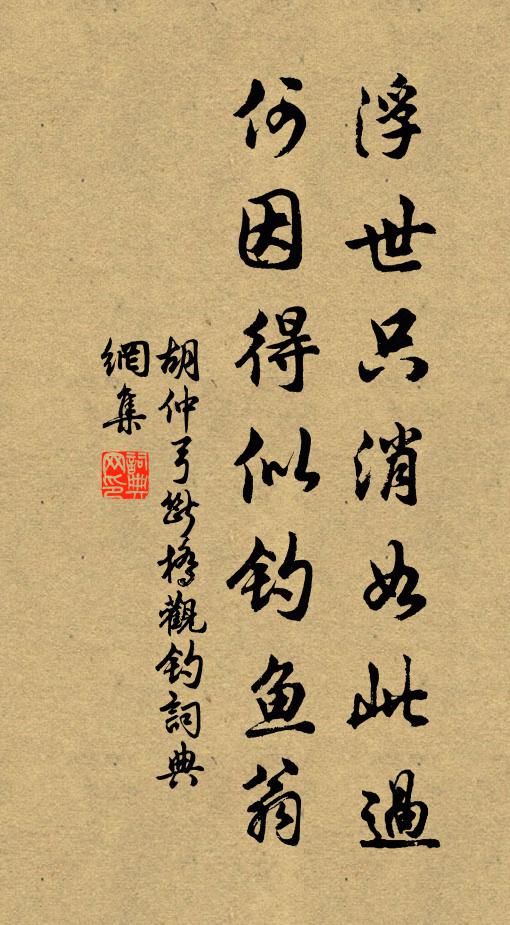 浮世只消如此過
何因得似钓鱼翁
胡仲弓断橋觀钓詞典
網集
詞典
网印